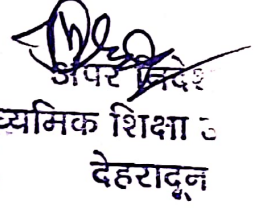 अपर निदेश
ध्यमिक शिक्षा उ
देहरादून